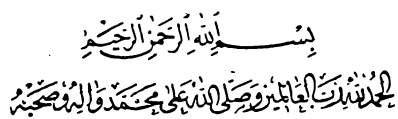 بِسْمِ اللهِ الرَّحْمٰنِ الرَّحِيْمِ
الحمد لله رب العالمين وصلى الله على محمد وآله وصحبه